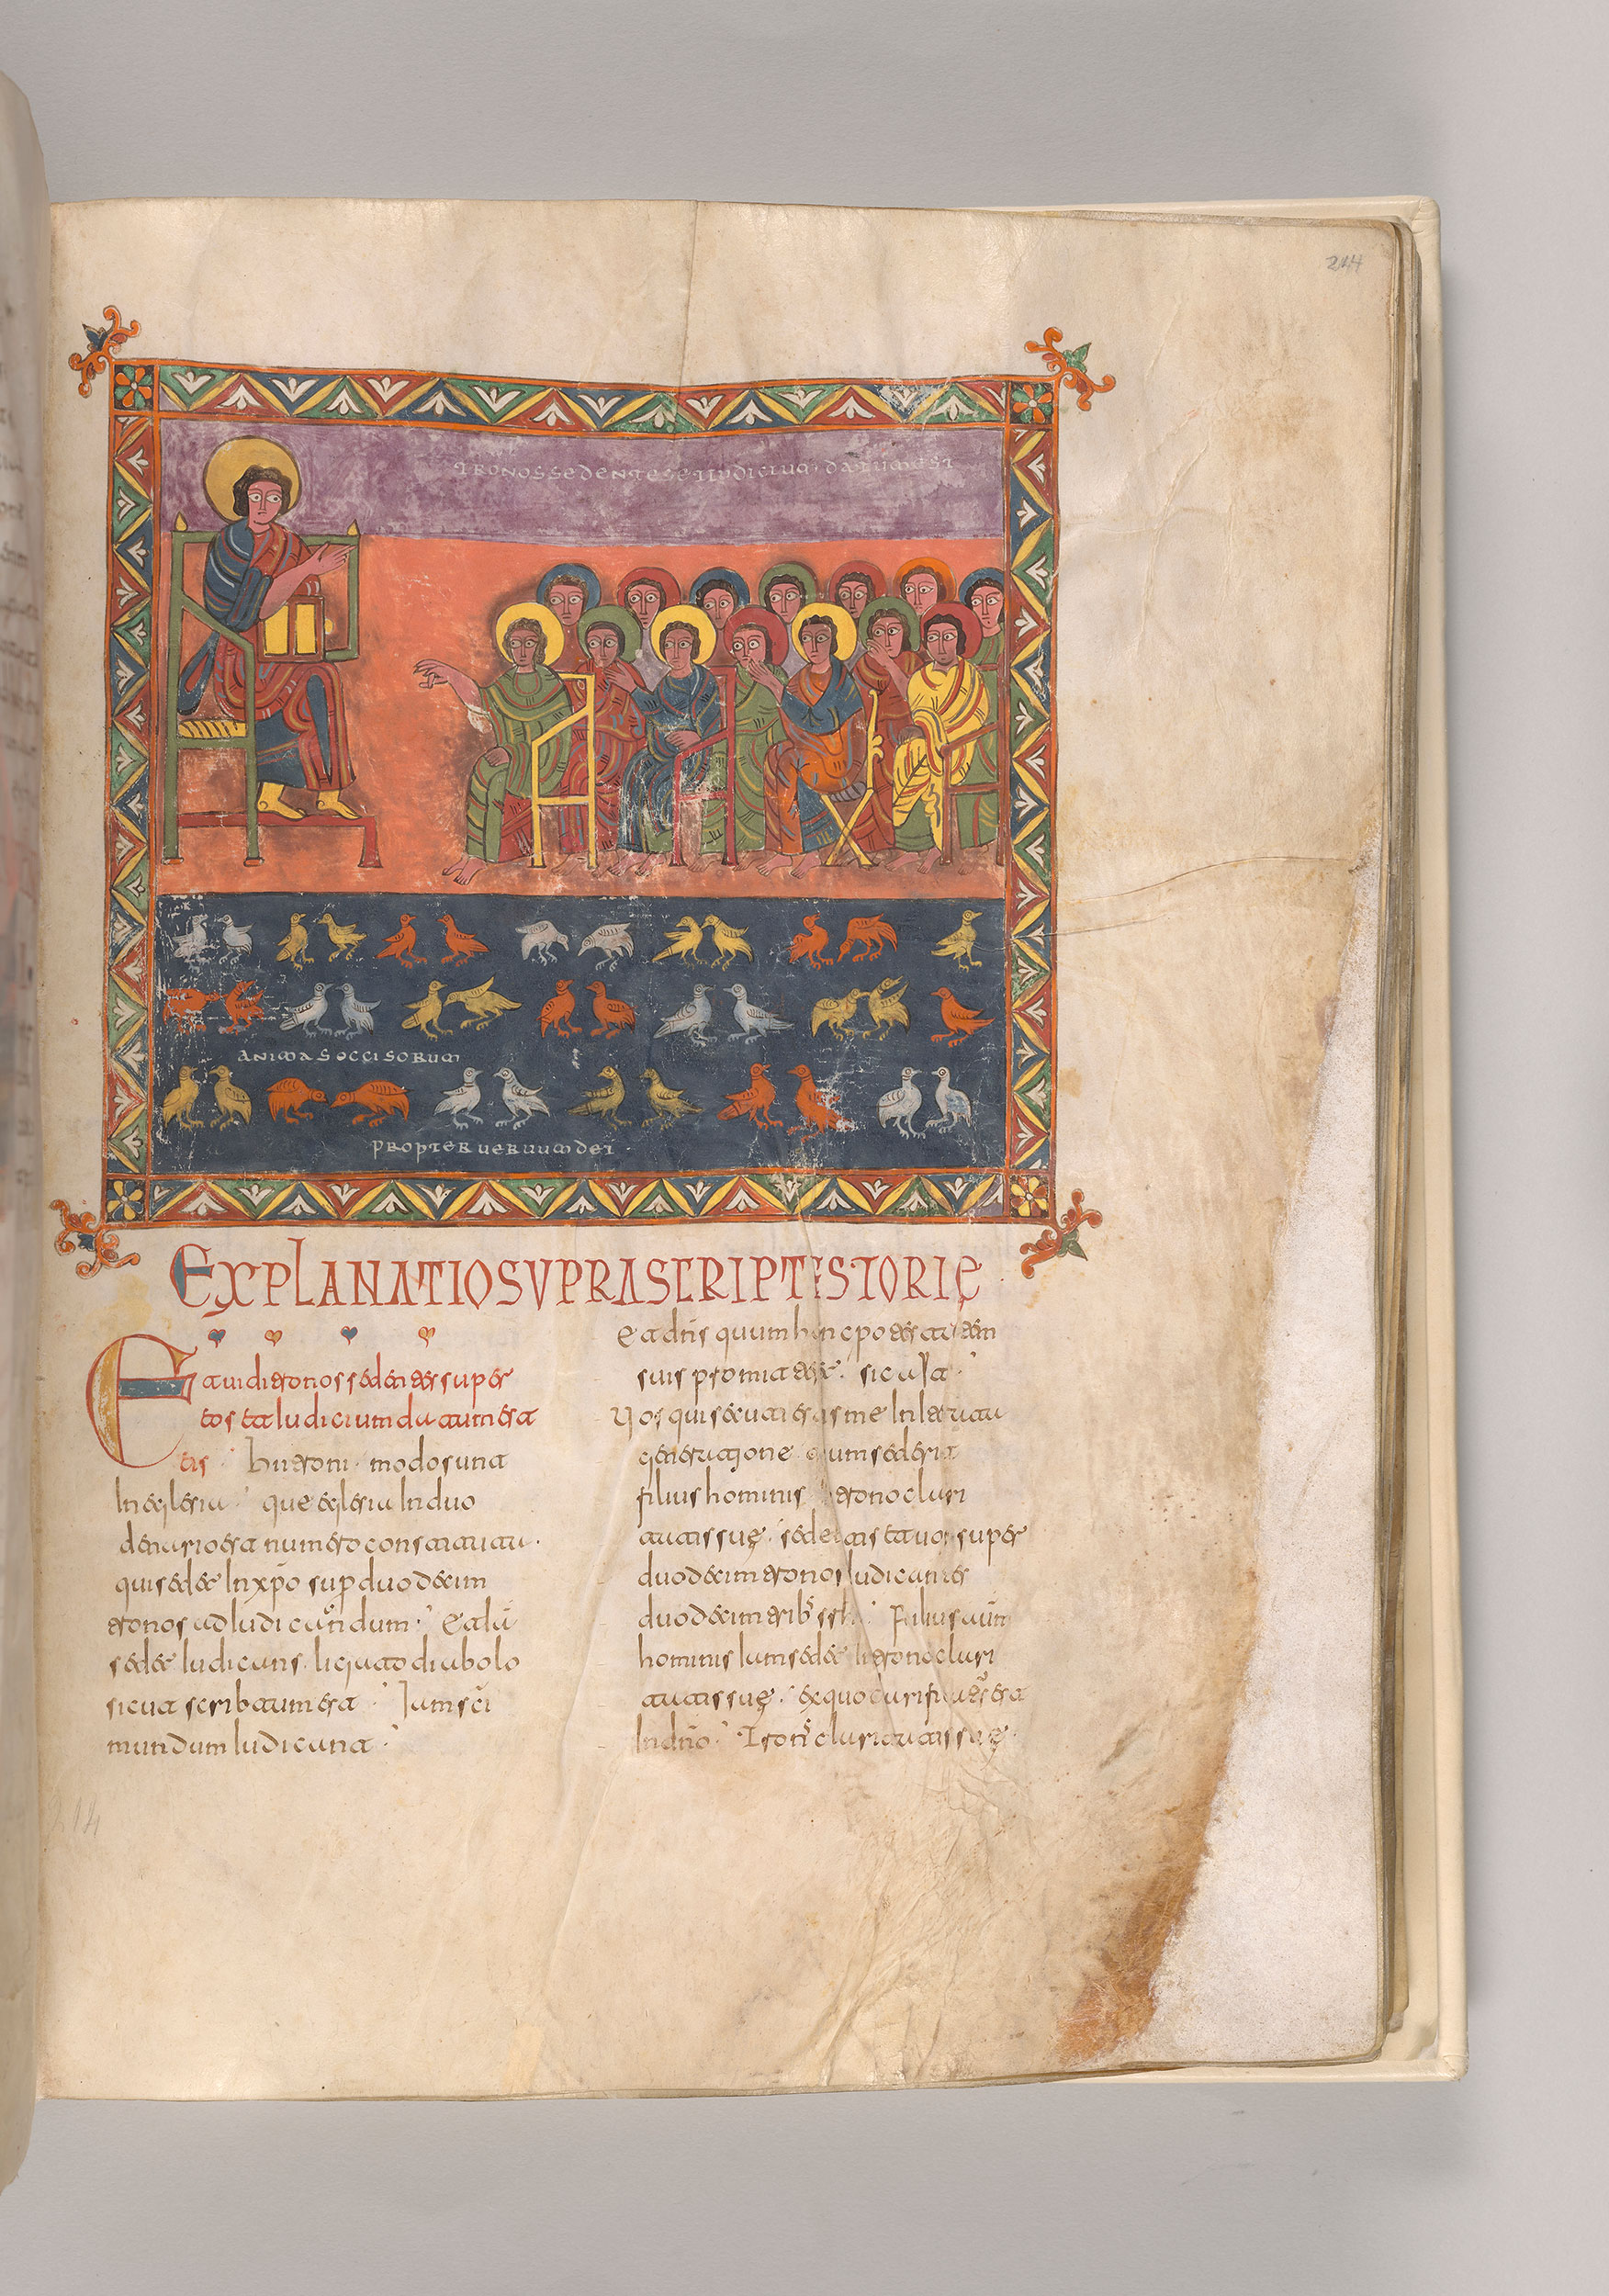 214
TRONOS SEDENTES ET IUDICIUM DATUM EST
ANIMAS OCCISORUM
PROPTER UERUUM DEI
EXPLANATIO SUPRASCRIPTE STORIE
Et uidi tronos sedentes super
eos et Iudicium datum est
eis. hii troni modo sunt
In eglesia. que eglesia In duo
denario est numero constituta.
qui sedet In xp̄o sup duodecim
tronos ad Iudicandum. Et iā
sedet Iudicans. ligato diabolo
sicut scribtum est. Iam sc̄i
mundum Iudicant.
Et dn̄s quum
suis promitteret. sic ait.
Uos qui secuti estis me In Iterata
generatione quum sederit
filius hominis In trono clari
tatis suę. sedebitis et uos super
duodecim tronos Iudicantes
duodecim trib srhl. Filius aūm
hominis Iam sedet In trono clari
tatis suę. ex quo clarificatus est
In dn̄o. claritatis suę.
214